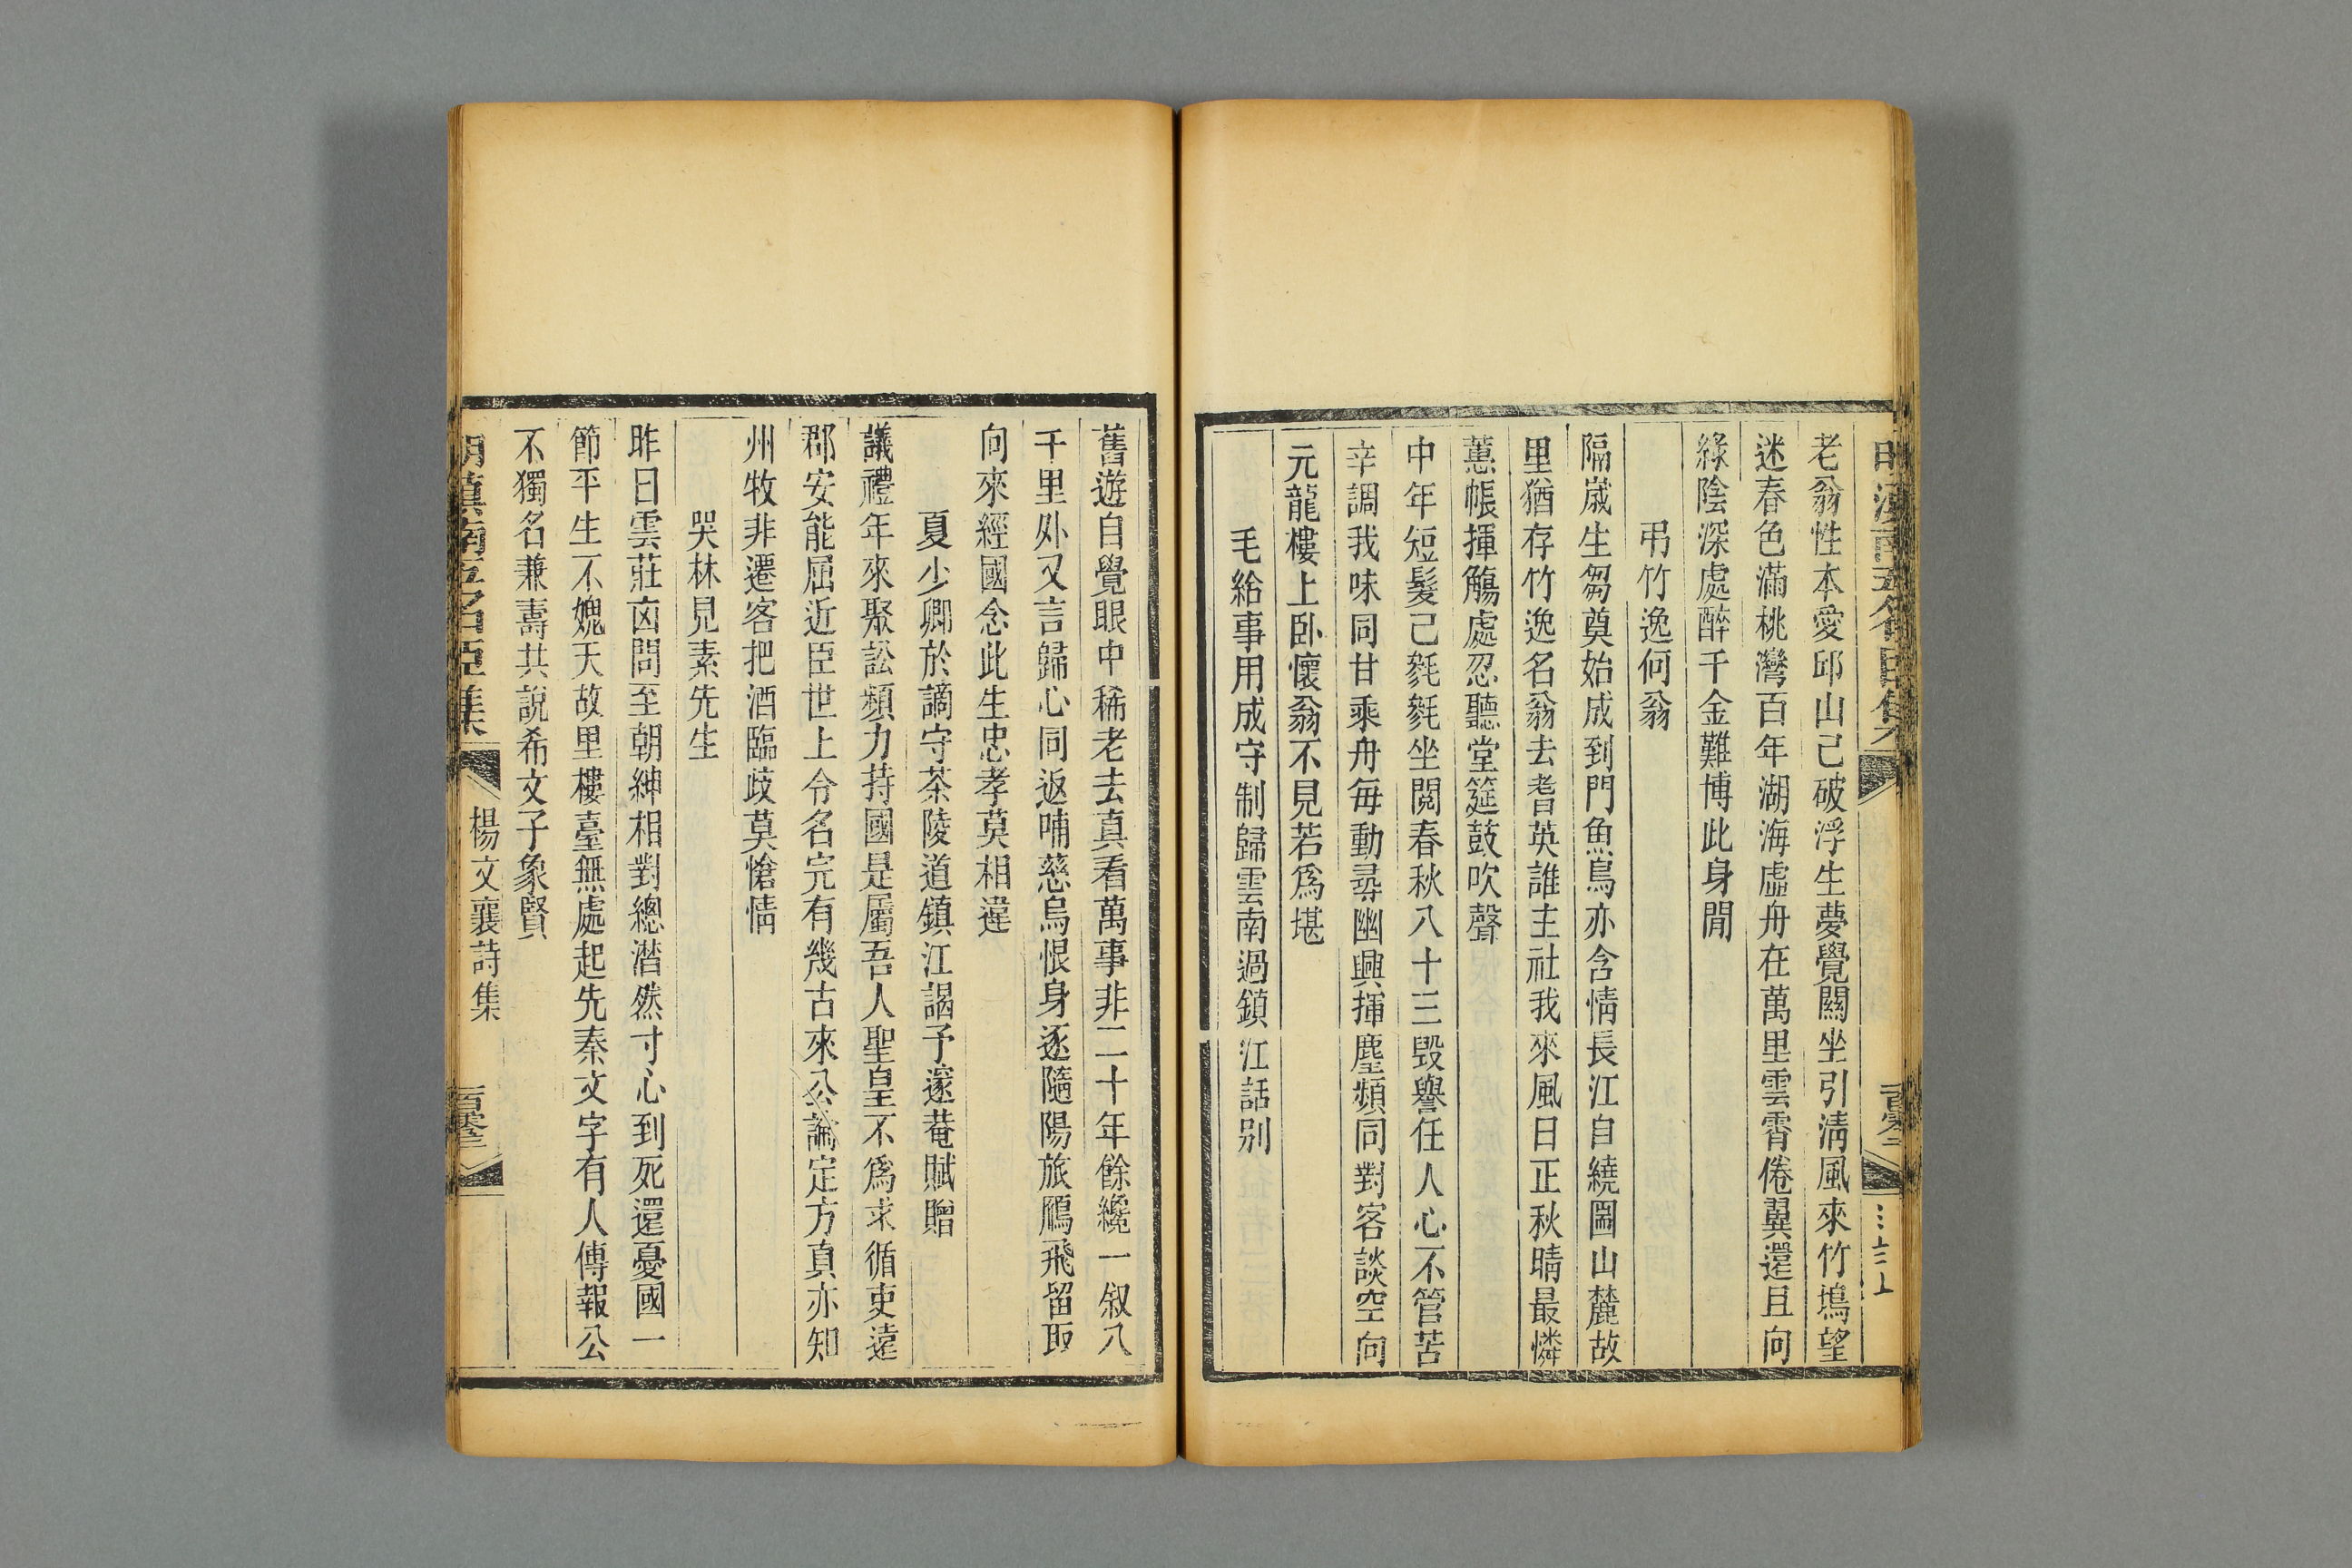 老翁性本愛邱山己破浮生夢覺關坐引淸風來竹塢望
迷春色滿桃灣百年湖海虛舟在萬里雲霄倦翼還且向
綠陰深處醉千金難博此身閒
弔竹逸何翁
隔歲生芻奠始成到門魚鳥亦含情長江自繞圌山麓故
里猶存竹逸名翁去耆英誰主社我來風日正秋晴最憐
蕙帳揮觴處忍聽堂筵鼓吹聲
中年短髮己毿毿坐閱春秋八十三毀譽任人心不管苦
辛調我味同甘乘舟每動尋幽興揮麈頻同對客談空向
元龍樓上卧懷翁不見若爲堪
毛給事用成守制歸雲南過鎮江話别
舊遊自覺眼中稀老去真看萬事非二十年餘纔一叙八
千里外又言歸心同返哺慈烏恨身逐隨陽旅鴈飛留取
向來經國念此生忠孝莫相違
夏少卿於謫守茶陵道鎮江謁予邃菴賦贈
議禮年來聚訟頻力持國是屬吾人聖皇不爲求循吏遠
郡安能屈近臣世上令名完有幾古來公論定方真亦知
州牧非遷客把酒臨歧莫愴情
哭林見素先生
昨日雲莊㐫問至朝紳相對總潸然寸心到死還憂國一
節平生不媿天故里樓臺無處起先秦文字有人傳報公
不獨名兼壽共說希文子象賢
明滇南五名臣集
楊文襄詩集